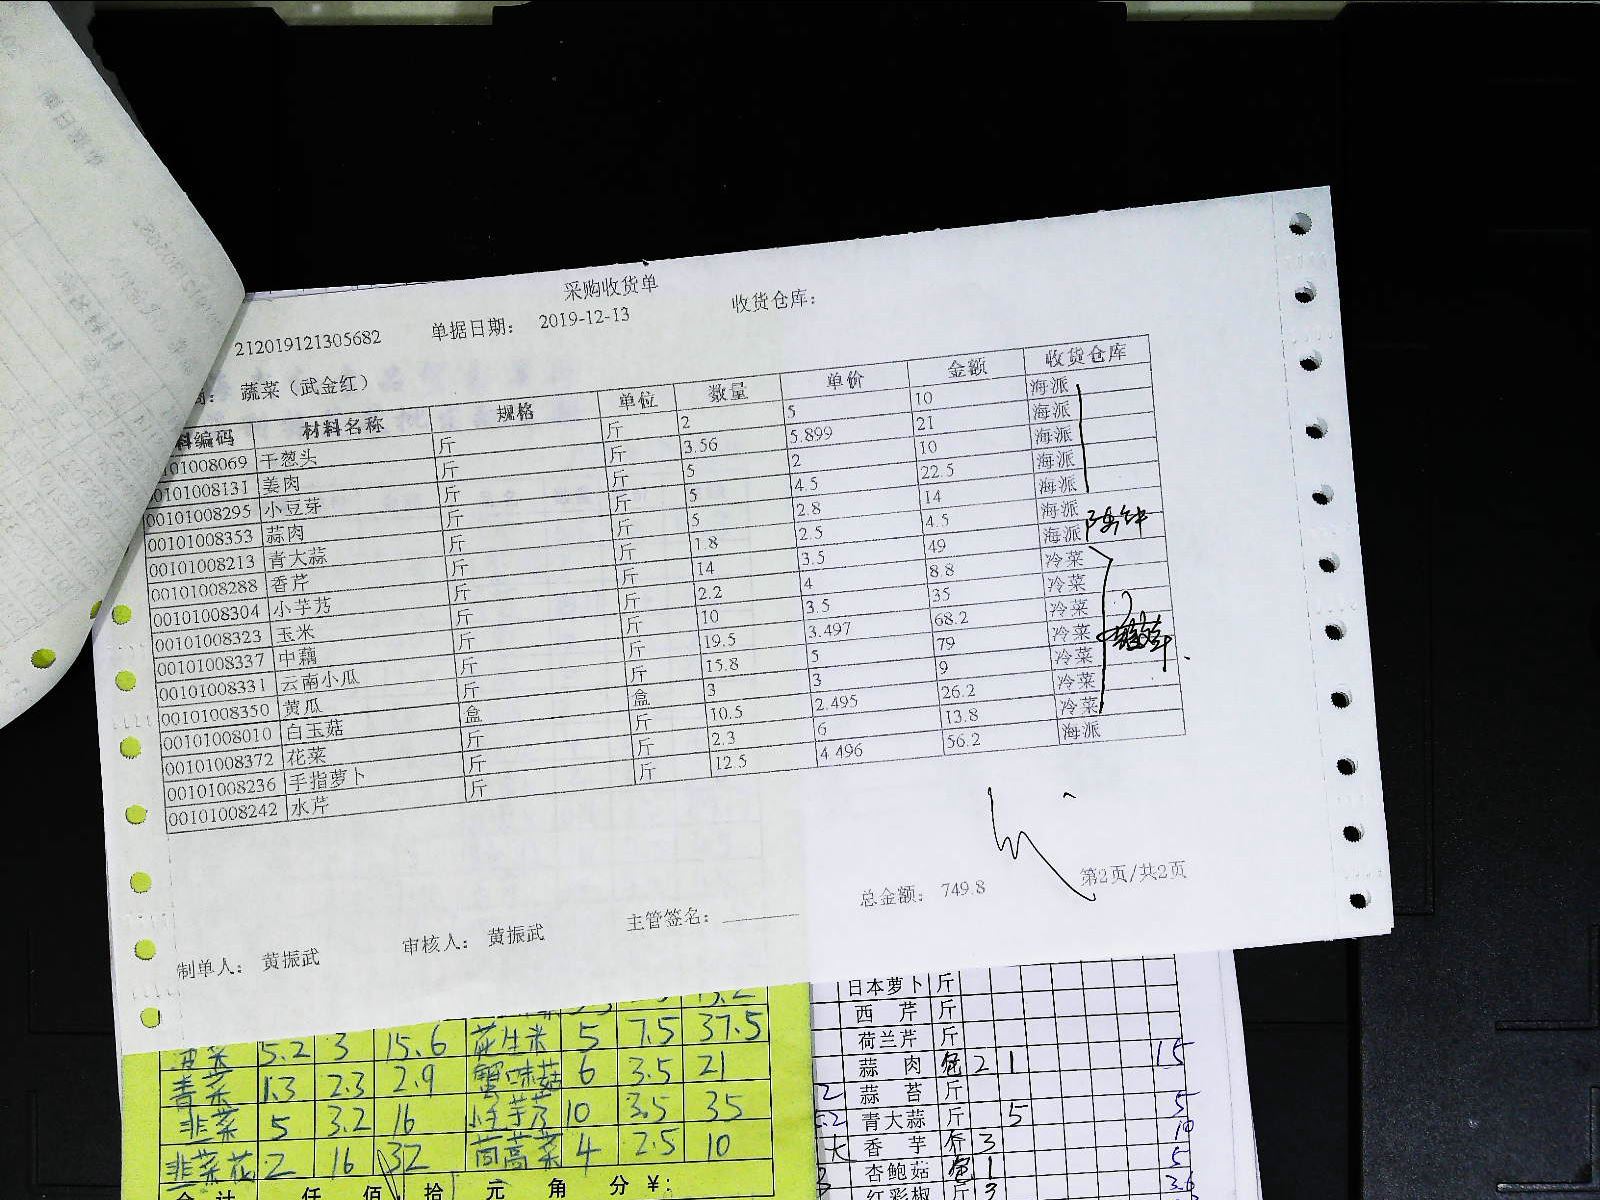 采购收货单
212019121305682 单据日期： 2019-12-13 收货仓库：
商： 蔬菜（武金红）
料编码 材料名称 规格 单位 数量 单价 金额 收货仓库
101008069 干葱头 斤 斤 2 5 10 海派
00101008131 姜肉 斤 斤 3.56 5.899 21 海派
00101008295 小豆芽 斤 斤 5 2 10 海派
00101008353 蒜肉 斤 斤 5 4.5 22.5 海派
00101008213 青大蒜 斤 斤 5 2.8 14 海派
00101008288 香芹 斤 斤 1.8 2.5 4.5 海派
00101008304 小芋艿 斤 斤 14 3.5 49 海派
00101008323 玉米 斤 斤 2.2 4 8.8 冷菜
00101008337 中藕 斤 斤 10 3.5 35 冷菜
00101008331 云南小瓜 斤 斤 19.5 3.497 68.2 冷菜
00101008350 黄瓜 斤 斤 15.8 5 79 冷菜
00101008010 白玉菇 盒 盒 3 3 9 冷菜
00101008372 花菜 斤 斤 10.5 2.495 26.2 冷菜
00101008236 手指萝卜 斤 斤 2.3 6 13.8 冷菜
00101008242 水芹 斤 斤 12.5 4.496 56.2 海派
总金额： 749.8 第2页/共2页
制单人： 黄振武 审核人： 黄振武 主管签名：
菠菜 5.2 3 15.6 花生米 5 7.5 37.5
青菜 1.3 2.3 2.9 蟹味菇 6 3.5 21
韭菜 5 3.2 16 小芋艿 10 3.5 35
韭菜花 2 16 32 茼蒿菜 4 2.5 10
合计 仟 佰 拾 元 角 分 ¥：
日本萝卜 斤
西芹 斤
荷兰芹 斤
蒜肉 包 2 1 15
蒜苔 斤
青大蒜 斤 5 5
香芋 斤 3 10
杏鲍菇 1 5
红彩椒 斤 3 3.6